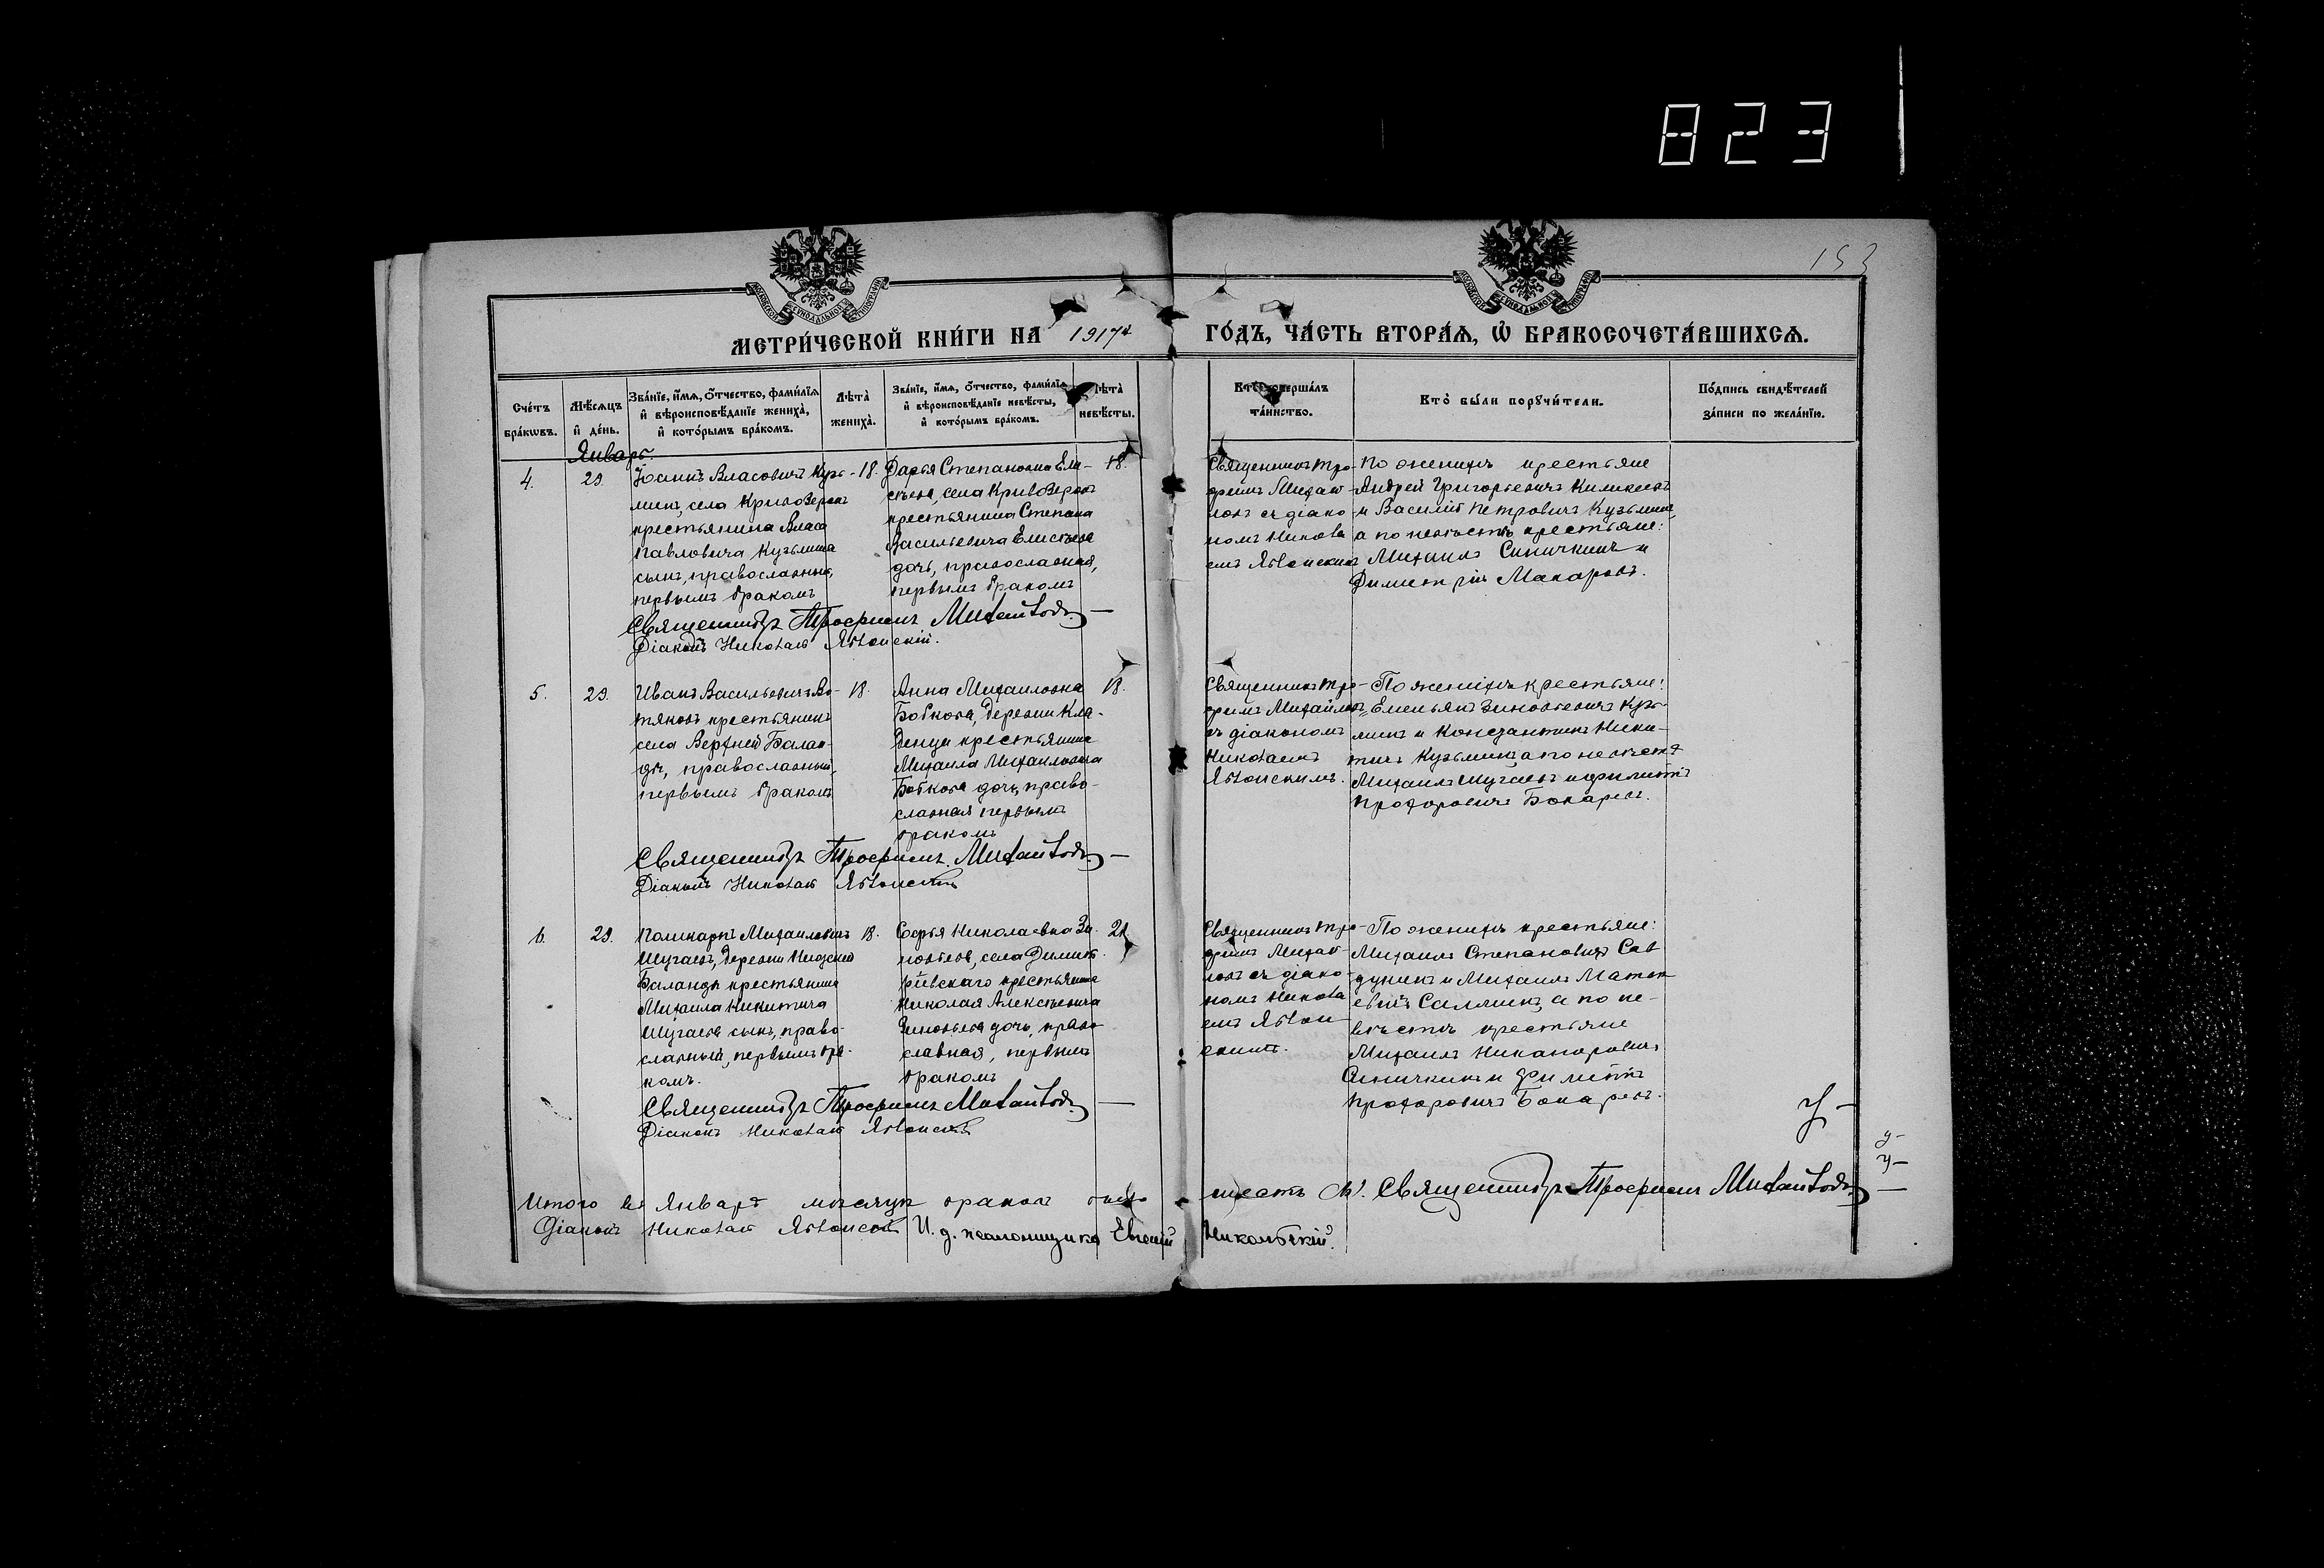 823
153
МОСКОВСКОЙ СѴНОДАЛЬНОЙ ТИПОГРАФІИ
МОСКОВСКОЙ СѴНОДАЛЬНОЙ ТИПОГРАФІИ
МЕТРИ́ЧЕСКОЙ КНИ́ГИ НА 1917й ГО́ДЪ, ЧА́СТЬ ВТОРА́Ѧ, Ѡ БРАКОСОЧЕТА́ВШИХСѦ.
Сче́тъ бра́кѡвъ.
Мѣ́сѧцъ и де́нь.
Зва́нїе, и́мѧ, ѻ́тчество, фами́лїѧ и вѣроисповѣ́данїе жениха̀, и кото́рымъ бра́комъ.
Лѣ́та жениха̀.
Зва́нїе, и́мѧ, ѻ́тчество, фами́лїѧ и вѣроисповѣ́данїе невѣ́сты, и кото́рымъ бра́комъ.
Лѣ́та невѣ́сты.
Кто̀ соверша́лъ та́инство.
Кто̀ бы́ли порꙋчи́тели.
По́дпись свидѣ́телей за́писи по жела́нїю.
Январь.
4.
29.
Іоаннъ Власовичъ Кузь-
минъ, села Кривозерокъ
крестьянина Власа
Павловича Кузьмина
сынъ, православный,
первымъ бракомъ
18.
Дарья Степановна Ели-
сѣева, села Кривозерокъ
крестьянина Степана
Васильевича Елисѣева
дочь, православная,
первымъ бракомъ
18.
Священникъ Тро-
фимъ Михай-
ловъ съ діако-
номъ Никола-
емъ Яблонскимъ
По женихѣ крестьяне
Андрей Григорьевичъ
и Василій Петровичъ Кузьмины,
а по невѣстѣ крестьяне:
Михаилъ Синичкинъ и
Димитрій Макаровъ.
Священникъ Трофимъ Михайловъ
Діаконъ Николай Яблонскій.
5.
29.
Иванъ Васильевичъ Во-
тяковъ крестьянинъ
села Верхней Балан-
ды, православный,
первымъ бракомъ
18.
Анна Михаиловна
Бобкова, деревни Кла-
денци крестьянина
Михаила Михаиловича
Бобкова дочь, право-
славная первымъ
бракомъ
18.
Священникъ Тро-
фимъ Михайловъ
съ діакономъ
Николаемъ
Яблонскимъ.
По женихѣ крестьяне:
Емельянъ Зиновьевичъ Кузь-
минъ и Константинъ Ники-
тичъ Кузьминъ, а по невѣстѣ
Михаилъ Шугаевъ и Филиппъ
Прохоровичъ Бокаревъ.
Священникъ Трофимъ Михайловъ
Діаконъ Николай Яблонскій
6.
29.
Поликарпъ Михаиловичъ
Шугаевъ, деревни
Баланды крестьянина
Михаила Никитича
Шугаева сынъ, право-
славный, первымъ бра-
комъ.
18.
Софья Николаевна Зи-
новьева, села Димит-
ріевскаго крестьянина
Николая Алексѣевича
Зиновьева дочь, право-
славная, первымъ
бракомъ
21
Священникъ Тро-
фимъ Михай-
ловъ съ діако-
номъ Никола-
емъ Яблон-
скимъ.
По женихѣ крестьяне:
Михаилъ Степановичъ Сав
и Михаилъ Матве
евичъ а по не-
вѣстѣ крестьяне
Михаилъ Никаноровичъ
Синичкинъ и Филиппъ
Прохоровичъ Бокаревъ.
Священникъ Трофимъ Михайловъ
Діаконъ Николай Яблонскій
Итого въ Январѣ мѣсяцѣ браковъ было шесть (6). Священникъ Трофимъ Михайловъ
Діаконъ Николай Яблонскій И. д. псаломщика Евгеній Никольскій.